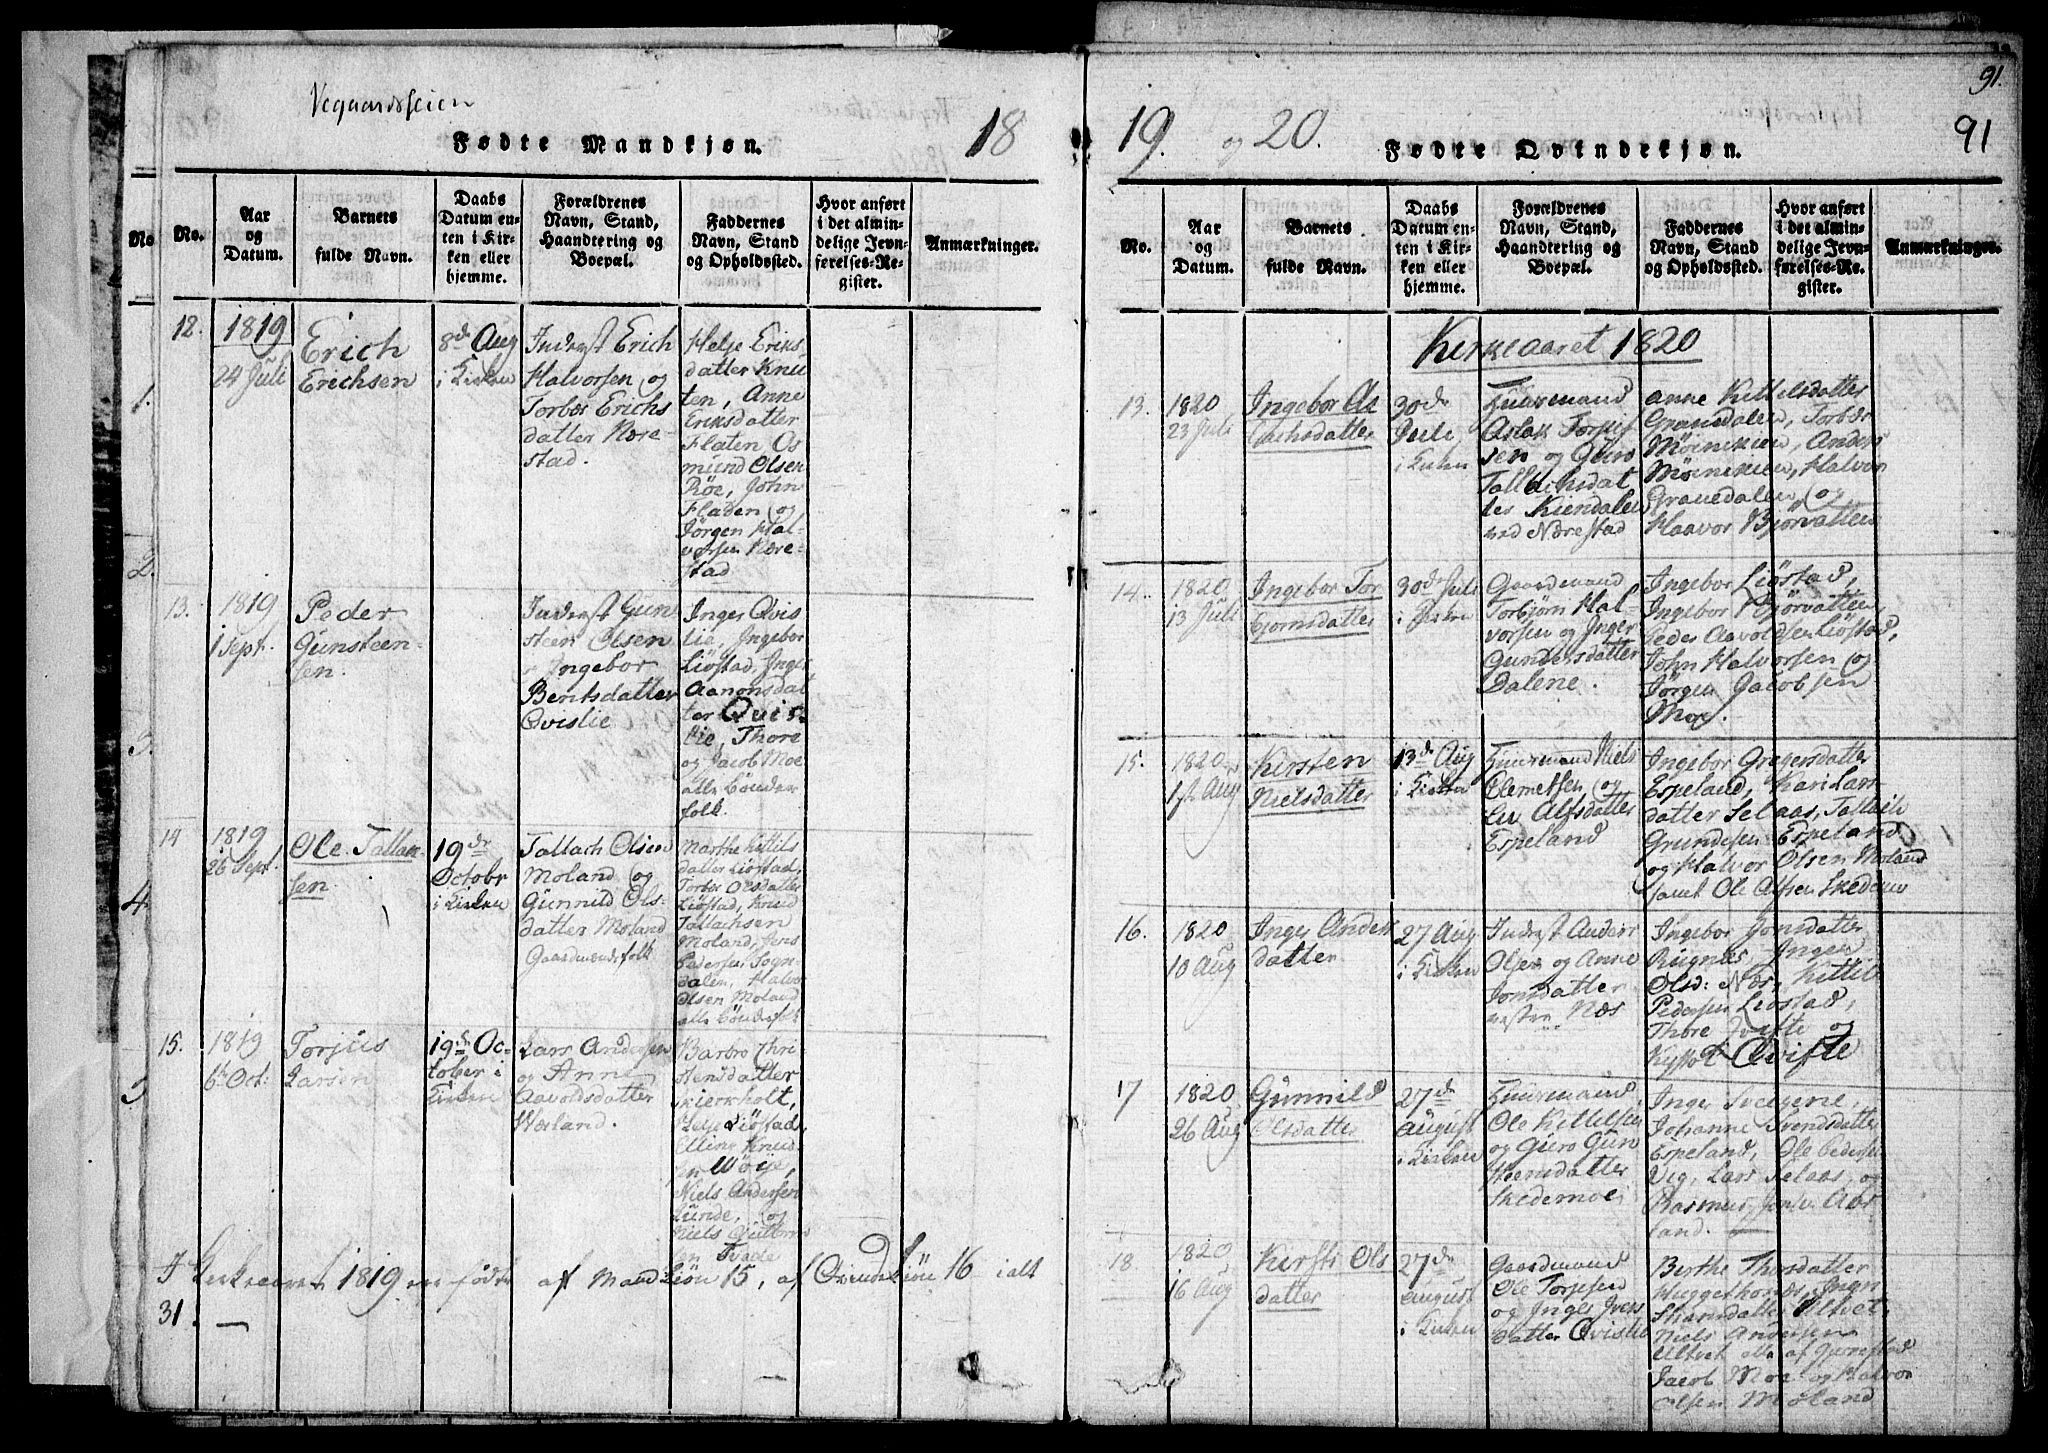 Vegaardsseien
18
Fødte Mandkjøn.
No.
No.
Aar
og
Datum.
Barnets
fulde Navn.
Daabs
Datum en-
ten i Kir-
ken eller
hjemme.
Forældrenes
Navn, Stand,
Haandtering og
Boepæl.
Faddernes
Navn, Stand
og Opholdssted.
Hvor anført
i det almin-
delige Jevn-
førelses-Re-
gister.
Anmærkninger.
12.
1819
24 Juli
Erich
Erichsen
8de Aug
i Kirken
Inderst Erich
Halvorsen og
Torbor Erichs
datter Nære-
stad.
Helje Eriks-
datter Knu
ten, Anne
Eriksdatter
Flaten Os
mund Olsen
Røe, John
Fladen og
Jørgen Hal-
vorsen Nære-
stad
13.
1819
1 Sept.
Peder
Gunsteen-
sen.
Inderst Gun
steen Olsen
Ingebor
Bentsdatter
Qvislie
Inger Qvis
lie, Ingebor
Liøstad, Inger
Aanonsdat
ter Qvis-
lie, Thore
og Jacob Moe
alle Bønder
folk.
14
1819
26 Sept.
Ole Tallak-
sen.
19de
Octobr
i Kirken
Tallach Olsen
Moland og
Gunnild Ols-
datter Moland
Gaardmandsfolk
Marthe Kittils
datter Liøstad,
Torbor Olsdatter
Liøstad, Knud
Tallachsen
Moland, Jens
Pedersen Sogn-
dalen, Halvor
Olsen Moland
alle Bøndefolk
15.
1819
6te Oct:
Torjus
Larsen
19de Oc-
tober i
Kirken
Lars Andersen
og Anne
Aavoldsdatter
Hæsland.
Barbro Chri-
stensdatter
Kierkholt,
Helje Liøstad,
Elling Knud-
sen Wøije,
Niels Andersen
Lunde, og
Niels Guttorms
sen Tvede
I Kirkeaaret 1819 ere fødte af Mandkiøn 15, af Qvindekiøn 16 ialt
31.
1.
2.
3.
4.
5
91.
91
19. og 20.
Fødte Qvindekjøn.
No.
Aar
og
Datum.
Barnets
fulde Navn.
Daabs
Datum en-
ten i Kir-
ken eller
hjemme.
Forældrenes
Navn, Stand,
Haandtering og
Boepæl.
Faddernes
Navn, Stand
og Opholdssted.
Hvor anført
i det almin-
delige Jevn-
førelses-Re-
gister.
Anmærkninger.
Kirkeaaret 1820
13.
1820
23 Juli
Ingebor As
lachsdatter
30de
Juli
i Kirken
Huusmand
Aslak Torkil
sen og Guro
Tallachsdat
ter Kiendalen
ved Nærestad
Anne Kittelsdatter
Grandalen, Torbør
Møinikien, Anders
Møinikien, Halvor
Gravedalen, og
Haavor Bjørvatten
14.
1820
13 Juli
Ingebor Tor
bjornsdatter
30de Juli
i Kirken
Gaardmand
Torbjørn Hal-
vorsen og Inger
Gundersdatter
Dalene.
Ingebor Liøstad,
Ingebor Bjørvatten,
Peder Aavoldsen Liøstad,
John Halvorsen og
Jørgen Jacobsen
Moe.
15.
1820
1st Aug
Kirsten
Nielsdatter
13de Aug
i Kirken
Huusmand Niels
Clemetsen og
Liv Alfsdatter
Espeland
Ingebor Gregersdatter
Espeland, Kari Lars
datter Selaas, Tallich
Grundesen Espeland
og Halvor Olsen Moland
samt Ole Alfsen Skedemo
16.
1820
10 Aug
Inger Anders
datter
27 Aug
i Kirken
Inderst Anders
Olsen og Anne
Jonsdatter
vestre Næs
Ingebor Jonsdatter
Rugnes, Inger
Olsd: Næs, Kittil
Pedersen Liøstad,
Thore Qviste og
Qviste
17
1820
26 Aug
Gunnild
Olsdatter
27de
August
i Kirken
Huusmand
Ole Kittelsen
og Guro Gun
steensdatter
Skedemoe
Inger Svelgene,
Johanne Svendsdatter
Espeland, Ole Pedersen
Vig, Lars Selaas, og
Rasmus Aas
land.
18
1820
16 Aug
Kirsti Ols
datter
27de
August
i Kirken
Gaardmand
Ole Torjesen
og Inger Ivers
datter Qvislie
Berthe Thorsdatter
Huggethornæs, Inger
Ultvet
Niels Andersen
Ultvet alle af Gjerrestad
Jacob Moe og Halvor
Olsen Moland